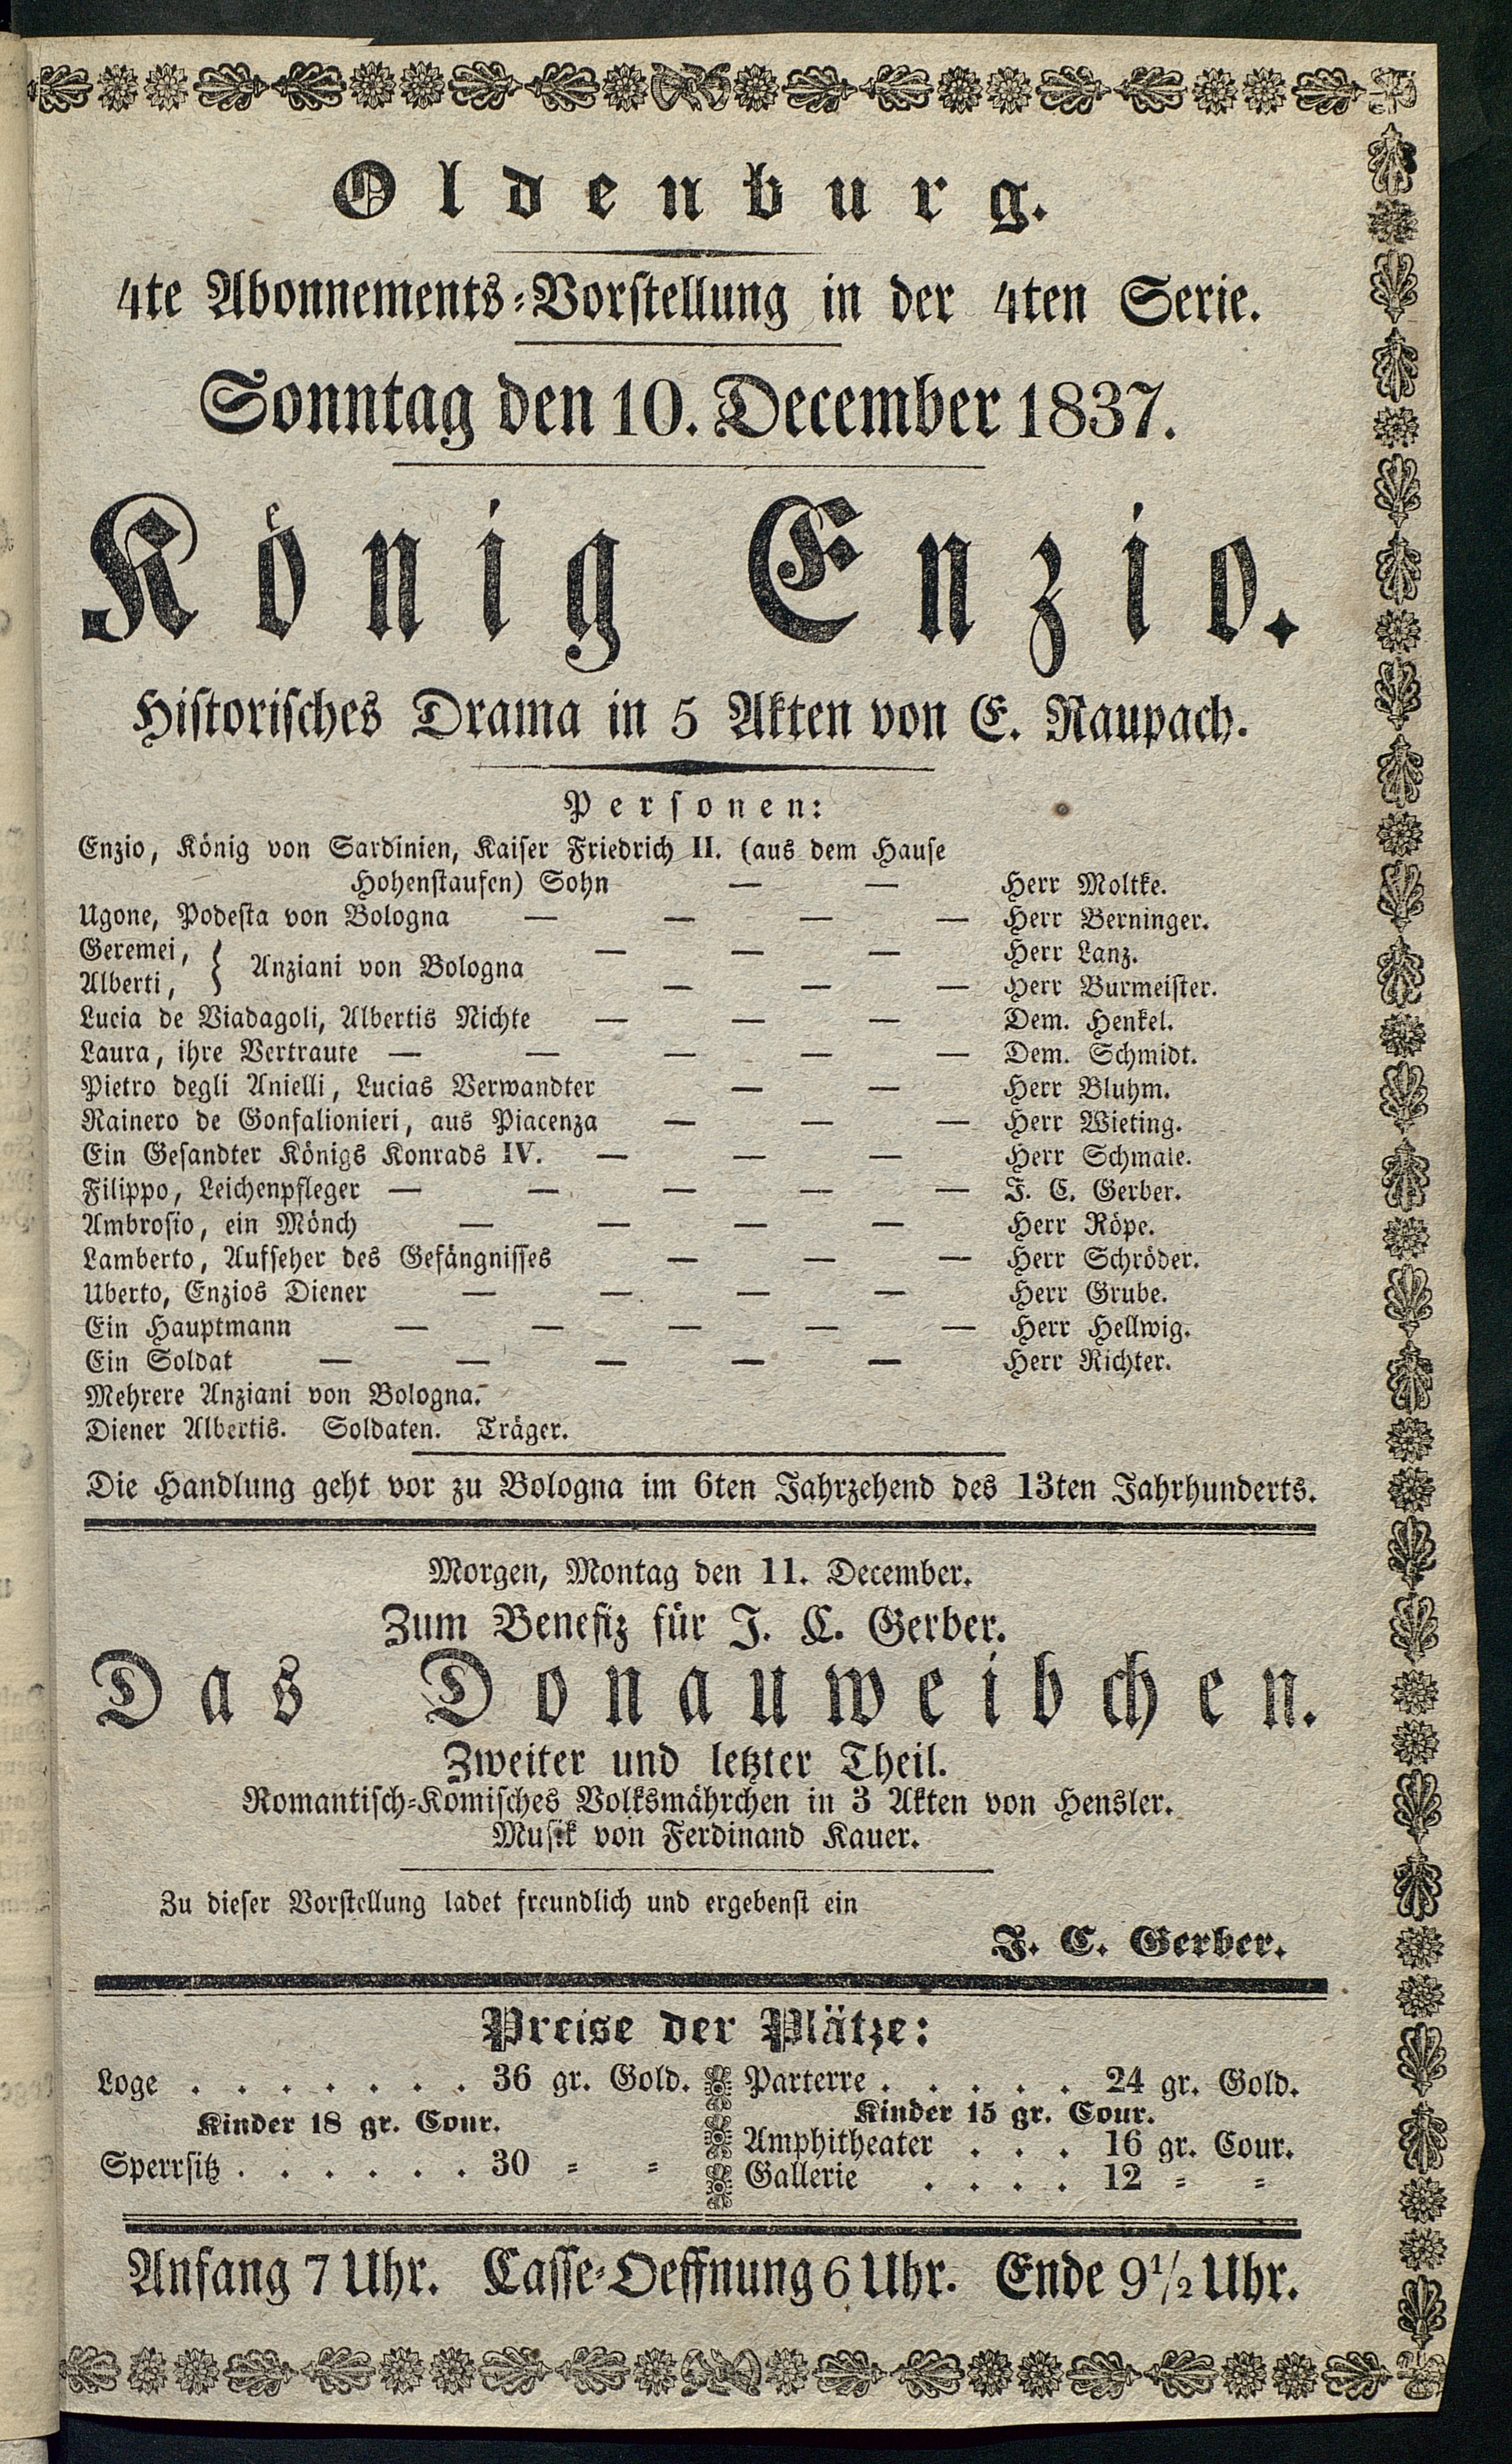 Oldenburg.
4te Abonnements-Vorstellung in der 4ten Serie.
Sonntag den 10. December 1837.
König Enzio.
Historisches Drama in 5 Akten von E. Raupach.
Personen:
Enzio, König von Sardinien, Kaiser Friedrich II. (aus dem Hause
Hohenstaufen) Sohn — — Herr Moltke.
Ugone, Podesta von Bologna — — — — Herr Berninger.
Geremei, } Anziani von Bologna — — — Herr Lanz.
Alberti, } — — — Herr Burmeister.
Lucia de Viadagoli, Albertis Nichte — — — Dem. Henkel.
Laura, ihre Vertraute — — — — — Dem. Schmidt.
Pietro degli Anielli, Lucias Verwandter — — Herr Bluhm.
Rainero de Gonfalionieri, aus Piacenza — — — Herr Wieting.
Ein Gesandter Königs Konrads IV. — — — Herr Schmale.
Filippo, Leichenpfleger — — — — — J. C. Gerber.
Ambrosio, ein Mönch — — — — Herr Röpe.
Lamberto, Aufseher des Gefängnisses — — — Herr Schröder.
Uberto, Enzios Diener — — — — Herr Grube.
Ein Hauptmann — — — — — Herr Hellwig.
Ein Soldat — — — — — Herr Richter.
Mehrere Anziani von Bologna.
Diener Albertis. Soldaten. Träger.
Die Handlung geht vor zu Bologna im 6ten Jahrzehend des 13ten Jahrhunderts.
Morgen, Montag den 11. December.
Zum Benefiz für J. C. Gerber.
Das Donauweibchen.
Zweiter und letzter Theil.
Romantisch-Komisches Volksmährchen in 3 Akten von Hensler.
Musik von Ferdinand Kauer.
Zu dieser Vorstellung ladet freundlich und ergebenst ein
J. C. Gerber.
Preise der Plätze:
Loge . . . . . . . 36 gr. Gold.
Kinder 18 gr. Cour.
Sperrsitz . . . . . . 30 = =
Parterre . . . . . 24 gr. Gold.
Kinder 15 gr. Cour.
Amphitheater . . . 16 gr. Cour.
Gallerie . . . . 12 = =
Anfang 7 Uhr. Casse-Oeffnung 6 Uhr. Ende 9 1/2 Uhr.